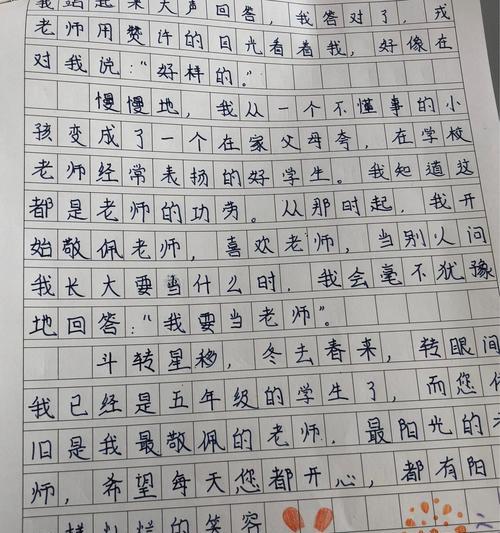 我站起来大声回答，我答对了，戎
老师用赞许的目光看着我，好像在
对我说：“好样的。”
慢慢地，我从一个不懂事的小
孩变成了一个在家父母夸，在学校
老师经常表扬的好学生。我知道这
都是老师的功劳。从那时起，我开
始敬佩老师，喜欢老师，当别人问
我长大要当什么时，我会毫不犹豫
地回答：“我要当老师”。
斗转星移，冬去春来，转眼间
我已经是五年级的学生了，而您依
旧是我最敬佩的老师。最阳光的老
师，希望每天您都开心，都有阳
灿烂的笑容